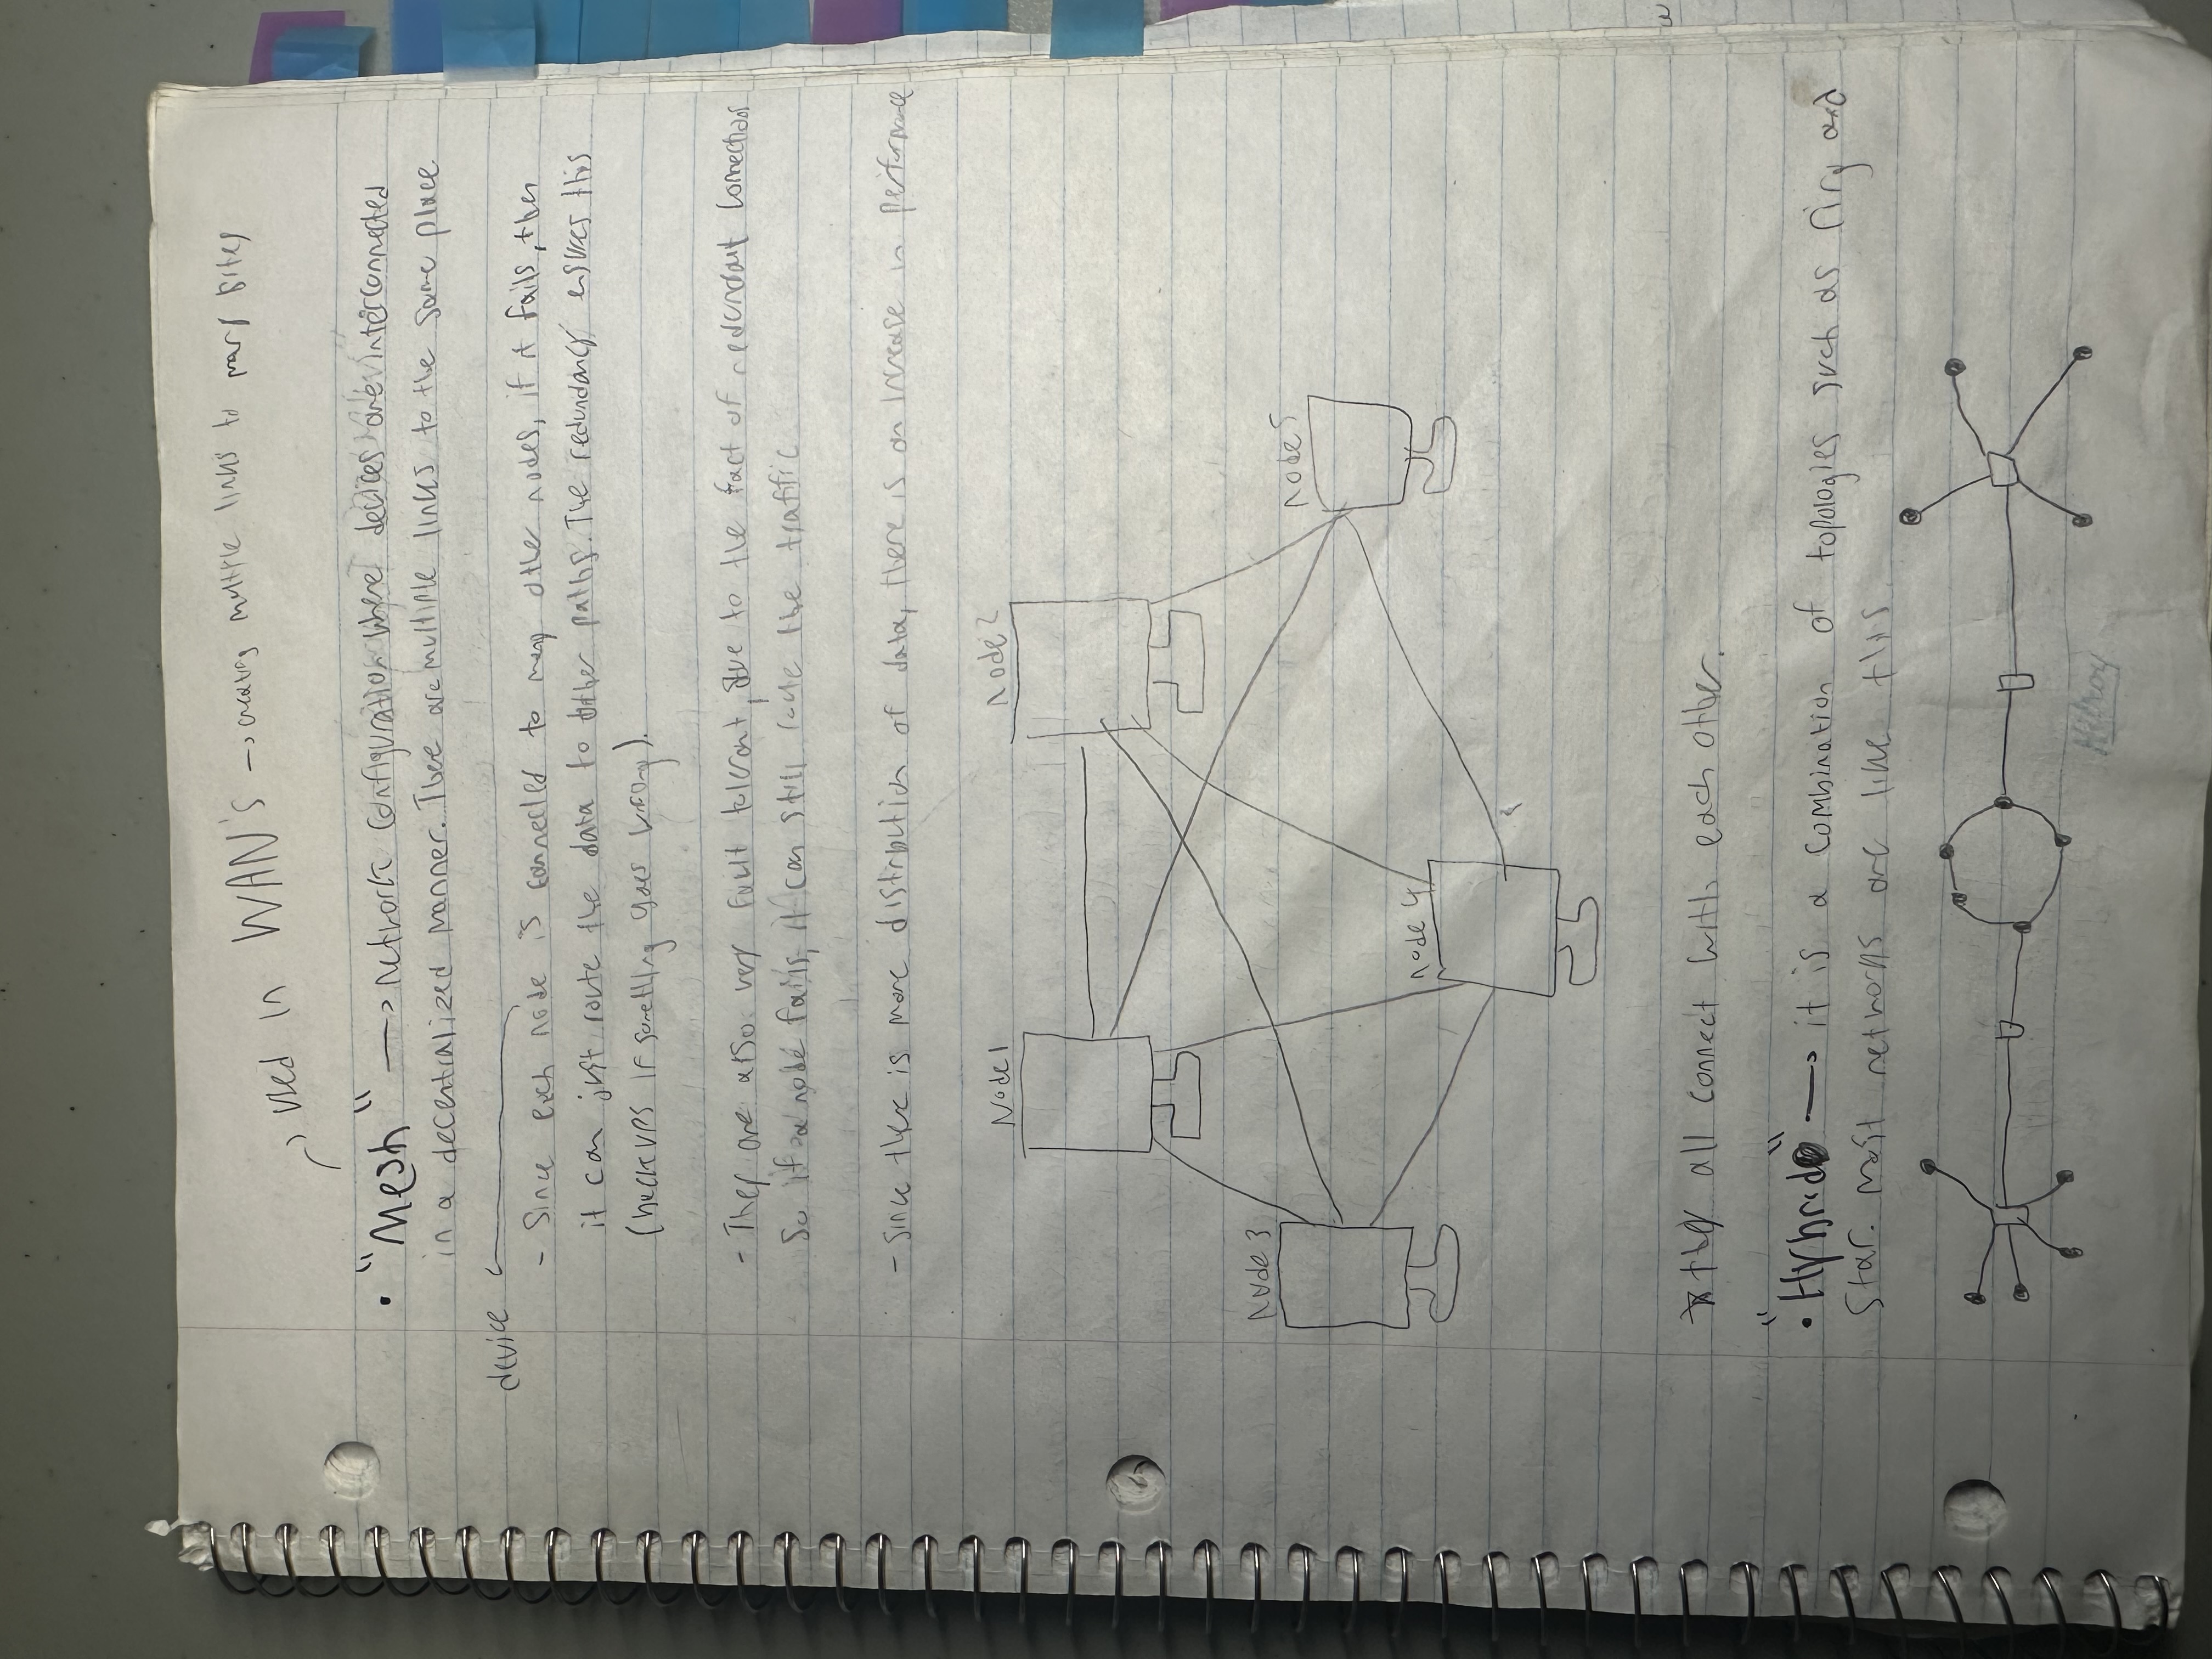 used in WAN's → creating multiple links to many sites
• "Mesh" → network configuration where devices are interconnected
in a decentralized manner. There are multiple links to the same place.
device
- Since each node is connected to many other nodes, if it fails, then
it can just route the data to other paths. The redundancy ensures this
(backups if something goes wrong).
- They are also very fault tolerant, due to the fact of redundant connections
So if a node fails, it can still route the traffic
- Since there is more distribution of data, there is an increase in performance
Node 1
Node 2
Node 3
Node 5
node 4
* they all connect with each other.
• "Hybrid" → it is a combination of topologies such as ring and
star. Most networks are like this
Hilroy